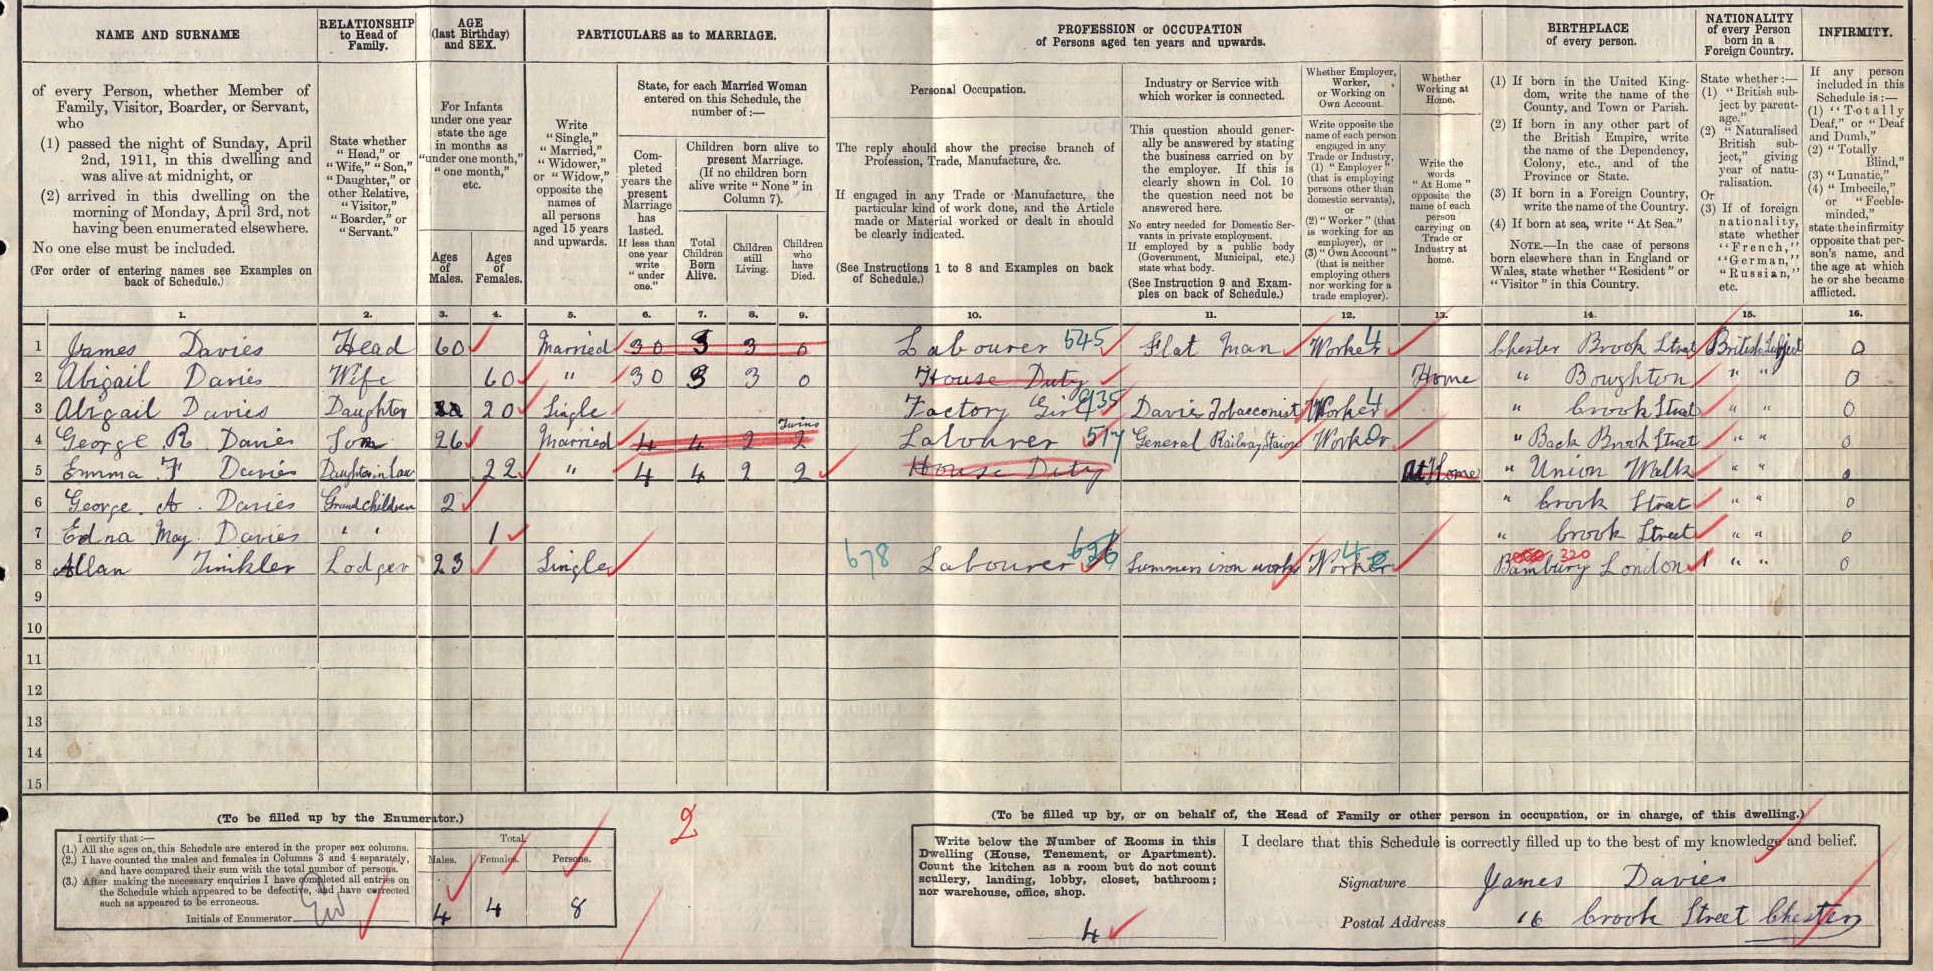 NAME AND SURNAME
of every Person, whether Member of
Family, Visitor, Boarder, or Servant,
who
(1) passed the night of Sunday, April
2nd, 1911, in this dwelling and
was alive at midnight, or
(2) arrived in this dwelling on the
morning of Monday, April 3rd, not
having been enumerated elsewhere.
No one else must be included.
(For order of entering names see Examples on
back of Schedule.)
RELATIONSHIP
to Head of
Family.
State whether
"Head," or
"Wife," "Son,"
"Daughter," or
other Relative,
"Visitor,"
"Boarder," or
"Servant."
AGE
(last Birthday)
and SEX.
For Infants
under one year
state the age
in months as
"under one month,"
"one month,"
etc.
Ages
of
Males.
Ages
of
Females.
PARTICULARS as to MARRIAGE.
Write
"Single,"
"Married,"
"Widower,"
or "Widow,"
opposite the
names of
all persons
aged 15 years
and upwards.
State, for each Married Woman
entered on this Schedule, the
number of:—
Com-
pleted
years the
present
Marriage
has
lasted.
If less than
one year
write
"under
one."
Children born alive to
present Marriage.
(If no children born
alive write "None" in
Column 7).
Total
Children
Born
Alive.
Children
still
Living.
Children
who
have
Died.
PROFESSION or OCCUPATION
of Persons aged ten years and upwards.
Personal Occupation.
The reply should show the precise branch of
Profession, Trade, Manufacture, &c.
If engaged in any Trade or Manufacture, the
particular kind of work done, and the Article
made or Material worked or dealt in should
be clearly indicated.
(See Instructions 1 to 8 and Examples on back
of Schedule.)
Industry or Service with
which worker is connected.
This question should gener-
ally be answered by stating
the business carried on by
the employer. If this is
clearly shown in Col. 10
the question need not be
answered here.
No entry needed for Domestic Ser-
vants in private employment.
If employed by a public body
(Government, Municipal, etc.)
state what body.
(See Instruction 9 and Exam-
ples on back of Schedule.)
Whether Employer,
Worker,
or Working on
Own Account.
Write opposite the
name of each person
engaged in any
Trade or Industry,
(1) "Employer"
(that is employing
persons other than
domestic servants),
or
(2) "Worker" (that
is working for an
employer), or
(3) "Own Account"
(that is neither
employing others
nor working for a
trade employer).
Whether
Working at
Home.
Write the
words
"At Home"
opposite the
name of each
person
carrying on
Trade or
Industry at
home.
BIRTHPLACE
of every person.
(1) If born in the United King-
dom, write the name of the
County, and Town or Parish.
(2) If born in any other part of
the British Empire, write
the name of the Dependency,
Colony, etc., and of the
Province or State.
(3) If born in a Foreign Country,
write the name of the Country.
(4) If born at sea, write "At Sea."
NOTE.—In the case of persons
born elsewhere than in England or
Wales, state whether "Resident" or
"Visitor" in this Country.
NATIONALITY
of every Person
born in a
Foreign Country.
State whether:—
(1) "British sub-
ject by parent-
age."
(2) "Naturalised
British sub-
ject," giving
year of natu-
ralisation.
Or
(3) If of foreign
nationality,
state whether
"French,"
"German,"
"Russian,"
etc.
INFIRMITY.
If any person
included in this
Schedule is:—
(1) "Totally
Deaf," or "Deaf
and Dumb,"
(2) "Totally
Blind,"
(3) "Lunatic,"
(4) "Imbecile,"
or "Feeble-
minded,"
state the infirmity
opposite that per-
son's name, and
the age at which
he or she became
afflicted.
1. 2. 3. 4. 5. 6. 7. 8. 9. 10. 11. 12. 13. 14. 15. 16.
1 James Davies Head 60 Married 30 3 3 0 Labourer 545 Flat Man Worker 4 Chester Brook Street British Subject 0
2 Abigail Davies Wife 60 " 30 3 3 0 House Duty Home " Boughton " " 0
3 Abigail Davies Daughter 20 Single Factory Girl 935 Davies Tobacconist Worker 4 " brook Street " " 0
Twins
4 George R Davies Son 26 Married 4 4 2 2 Labourer 517 General Railway Worker " Back Brook Street " " 0
5 Emma F Davies Daughter in Law 22 " 4 4 2 2 House Duty At Home " Union Walk " " 0
6 George A Davies Grand children 2 " brook Street " " 0
7 Edna May Davies " " 1 " brook Street " " 0
8 Allan Tinkler Lodger 23 Single 678 Labourer Summers iron works Worker 4 320 Bambury London " " 0
9
10
11
12
13
14
15
(To be filled up by the Enumerator.)
I certify that:—
(1.) All the ages on this Schedule are entered in the proper sex columns.
(2.) I have counted the males and females in Columns 3 and 4 separately,
and have compared their sum with the total number of persons.
(3.) After making the necessary enquiries I have completed all entries on
the Schedule which appeared to be defective, and have corrected
such as appeared to be erroneous.
Initials of Enumerator
Total.
Males. Females. Persons.
4 4 8
2
(To be filled up by, or on behalf of, the Head of Family or other person in occupation, or in charge, of this dwelling.)
Write below the Number of Rooms in this
Dwelling (House, Tenement, or Apartment).
Count the kitchen as a room but do not count
scullery, landing, lobby, closet, bathroom;
nor warehouse, office, shop.
4
I declare that this Schedule is correctly filled up to the best of my knowledge and belief.
Signature James Davies
Postal Address 16 brook Street Chester